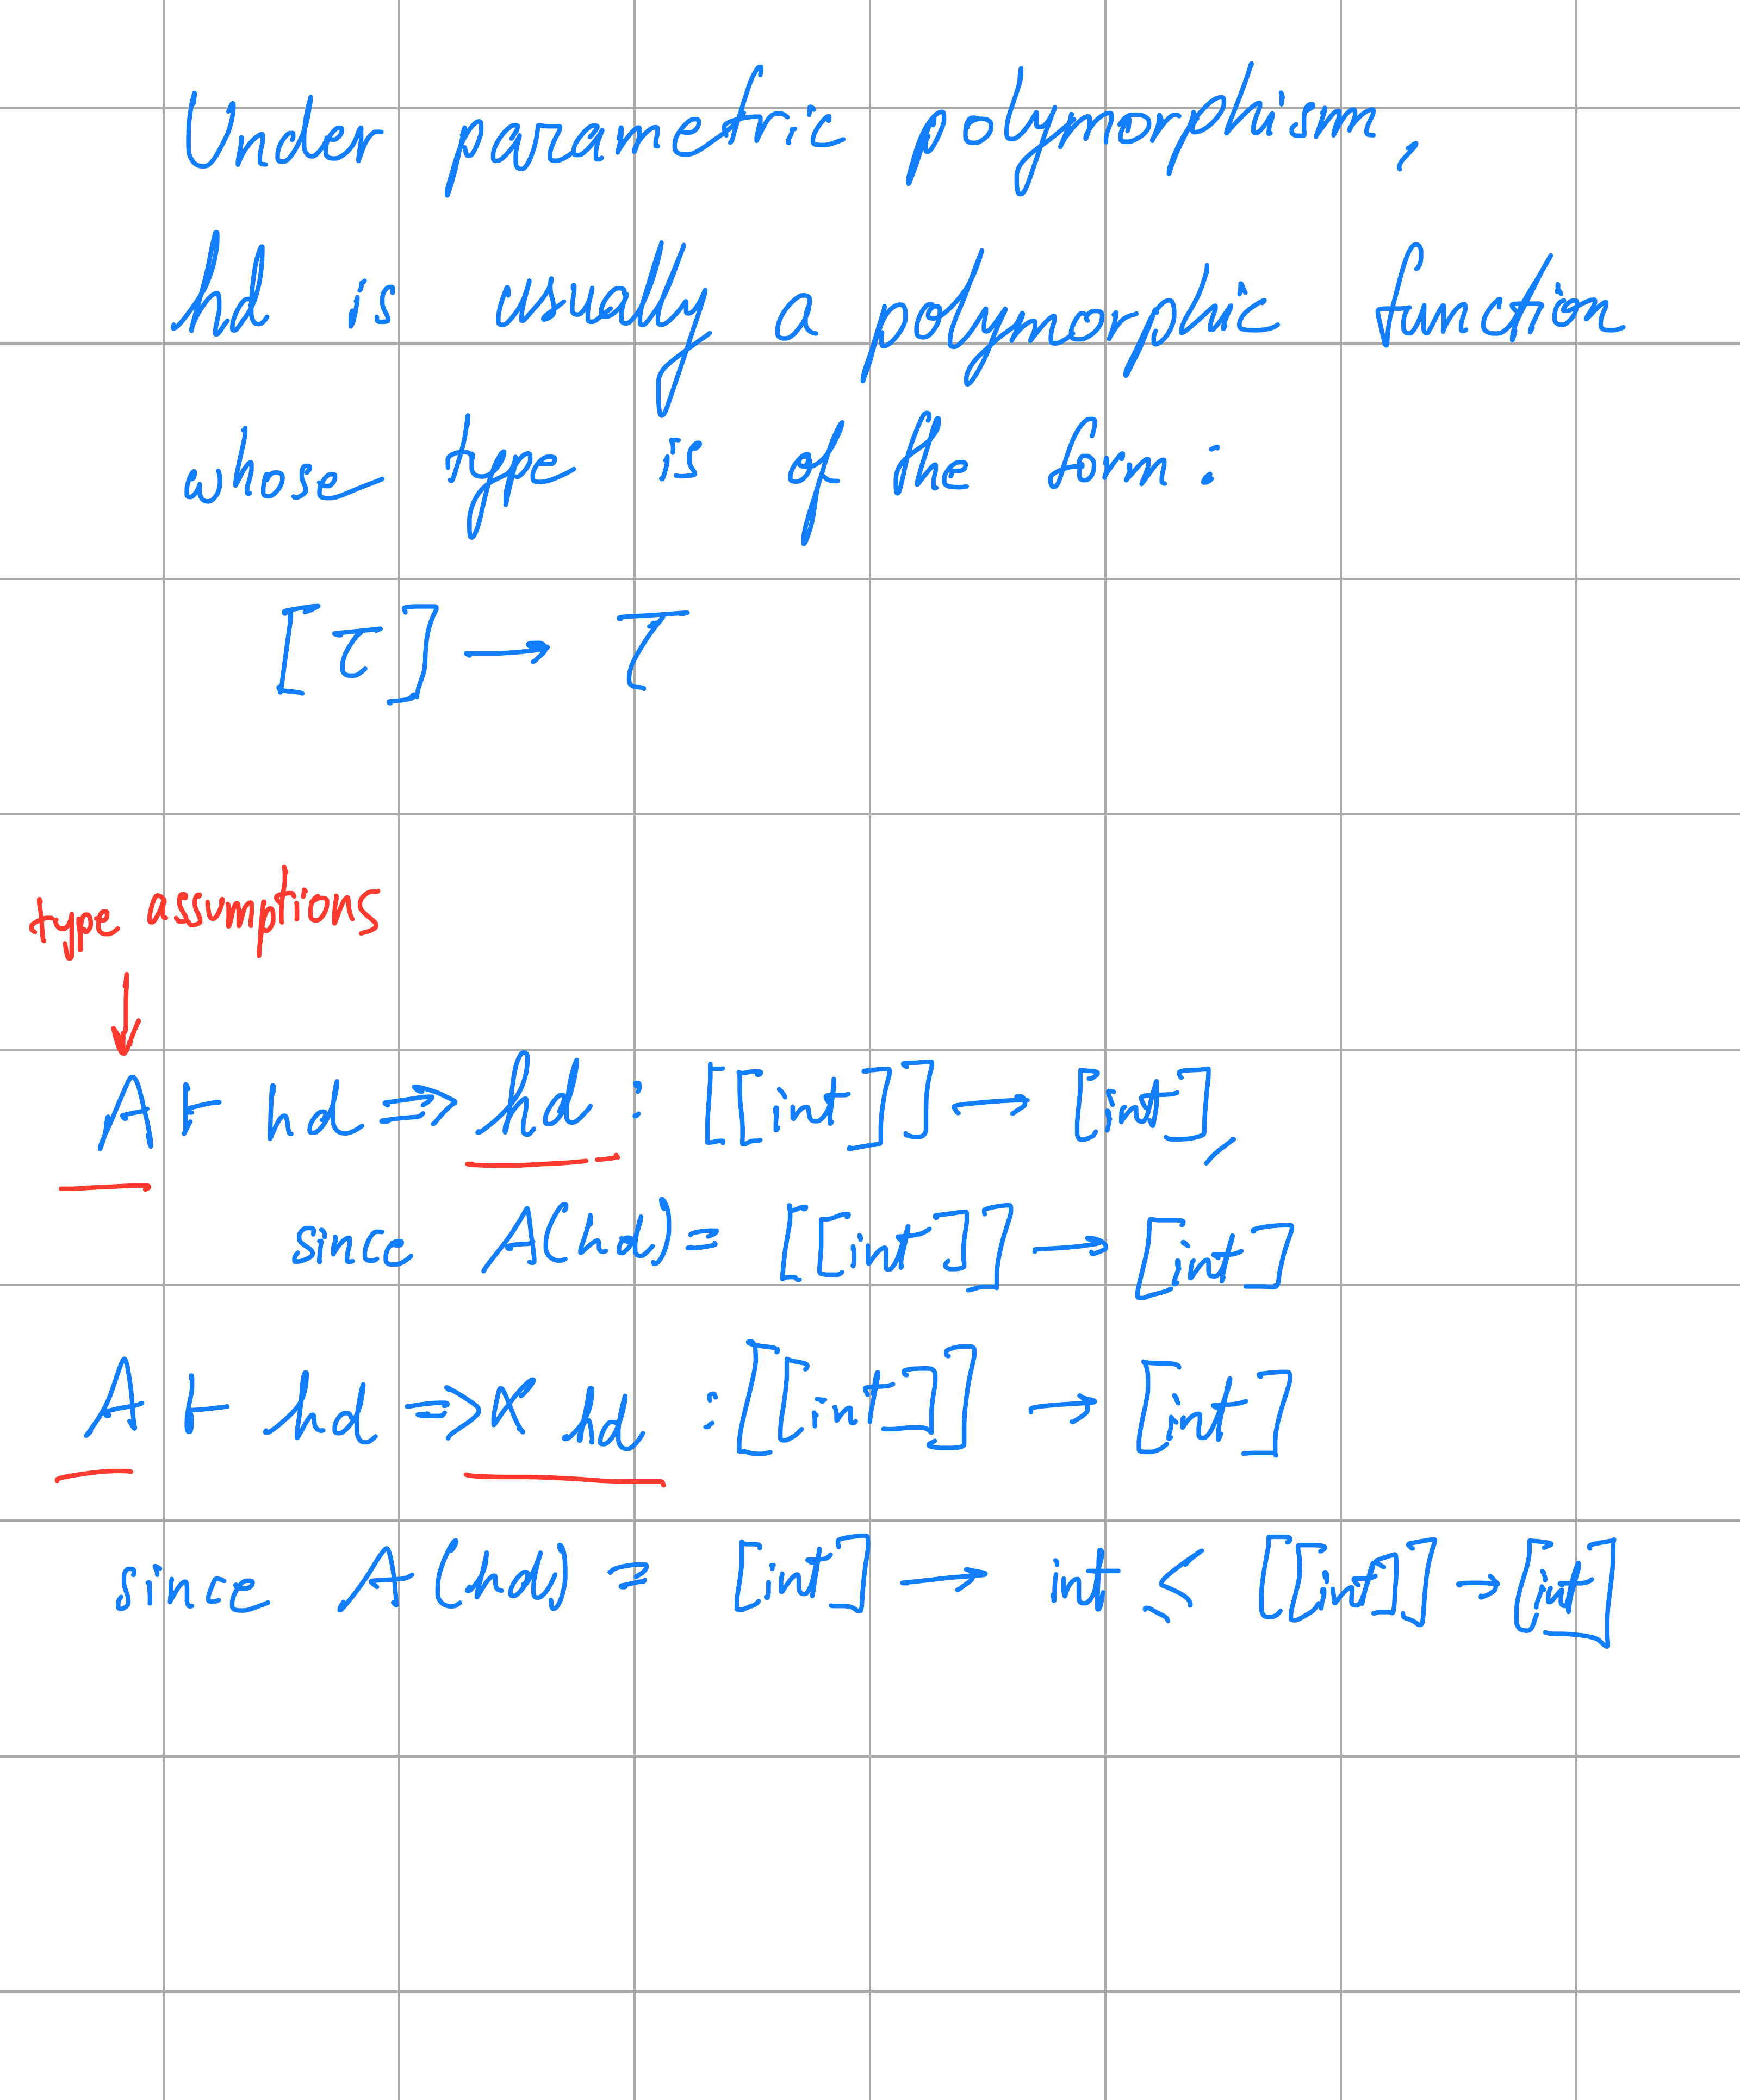 Under parametric polymorphism,
hd is usually a polymorphic function
whose type is of the form :
[τ] → τ
type assumptions
A ⊢ hd ⇒ hd : [[int]] → [int],
since A(hd) = [[int]] → [int]
A ⊢ hd ⇒ K hd : [[int]] → [int]
since A(hd) = [int] → int ≤ [[int]] → [int]